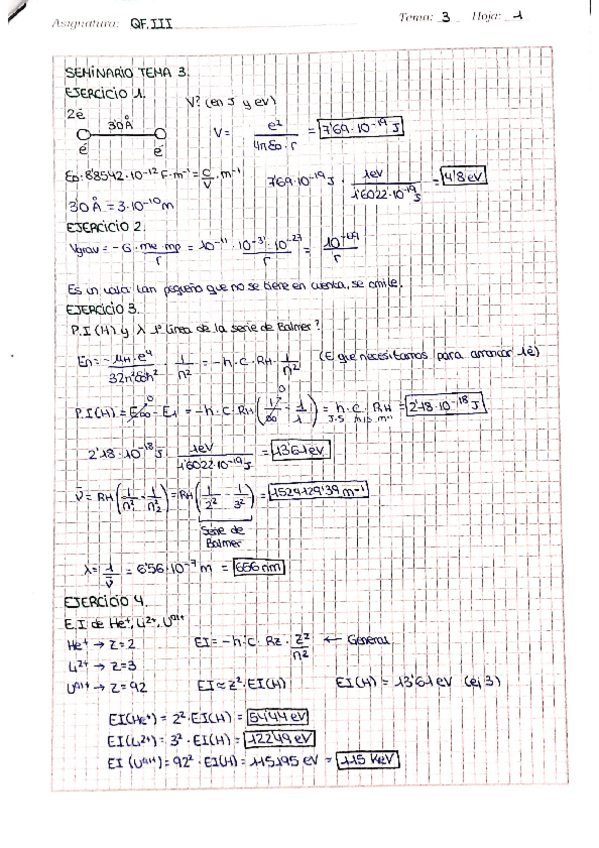 Asignatura: QF.III Tema: 3 Hoja: 1
SEMINARIO TEMA 3.
EJERCICIO 1.
2é V? (en J y eV)
3'0Å
é é
V = e² / 4πε₀·r = 7'69·10⁻¹⁹ J
ε₀: 8'8542·10⁻¹² F·m⁻¹ = C/V·m⁻¹
7'69·10⁻¹⁹ J · 1eV / 1'6022·10⁻¹⁹ J = 4'8 eV
3'0 Å = 3·10⁻¹⁰ m
EJERCICIO 2.
Vgrav = -G·me·mp / r = 10⁻¹¹·10⁻³¹·10⁻²⁷ / r = 10⁻⁶⁹ / r
Es un valor tan pequeño que no se tiene en cuenta, se omite.
EJERCICIO 3.
P.I (H) y λ 1ª línea de la serie de Balmer?
En = -μH·e⁴ / 32π²ε₀²ħ² · 1/n² = -h·c·RH·1/n² (E que necesitamos para arrancar 1é)
P.I (H) = E∞ - E1 = -h·c·RH (1/∞ - 1/1) = h·c·RH = 2'18·10⁻¹⁸ J
0 0 J·s m/s m⁻¹
2'18·10⁻¹⁸ J · 1eV / 1'6022·10⁻¹⁹ J = 13'61 eV
ν̄ = RH (1/n² - 1/n₂²) = RH (1/2² - 1/3²) = 1524129'39 m⁻¹
Serie de
Balmer
λ = 1/ν̄ = 6'56·10⁻⁷ m = 656 nm
EJERCICIO 4.
E.I de He⁺, Li²⁺, U⁹¹⁺
He⁺ → Z=2 EI = -h·c·Rz·Z²/n² ← General
Li²⁺ → Z=3
U⁹¹⁺ → Z=92 EI ≈ Z²·EI(H) EI(H) = 13'61 eV (ej 3)
EI(He⁺) = 2²·EI(H) = 54'44 eV
EI(Li²⁺) = 3²·EI(H) = 122'49 eV
EI (U⁹¹⁺) = 92²·EI(H) = 115195 eV = 115 KeV